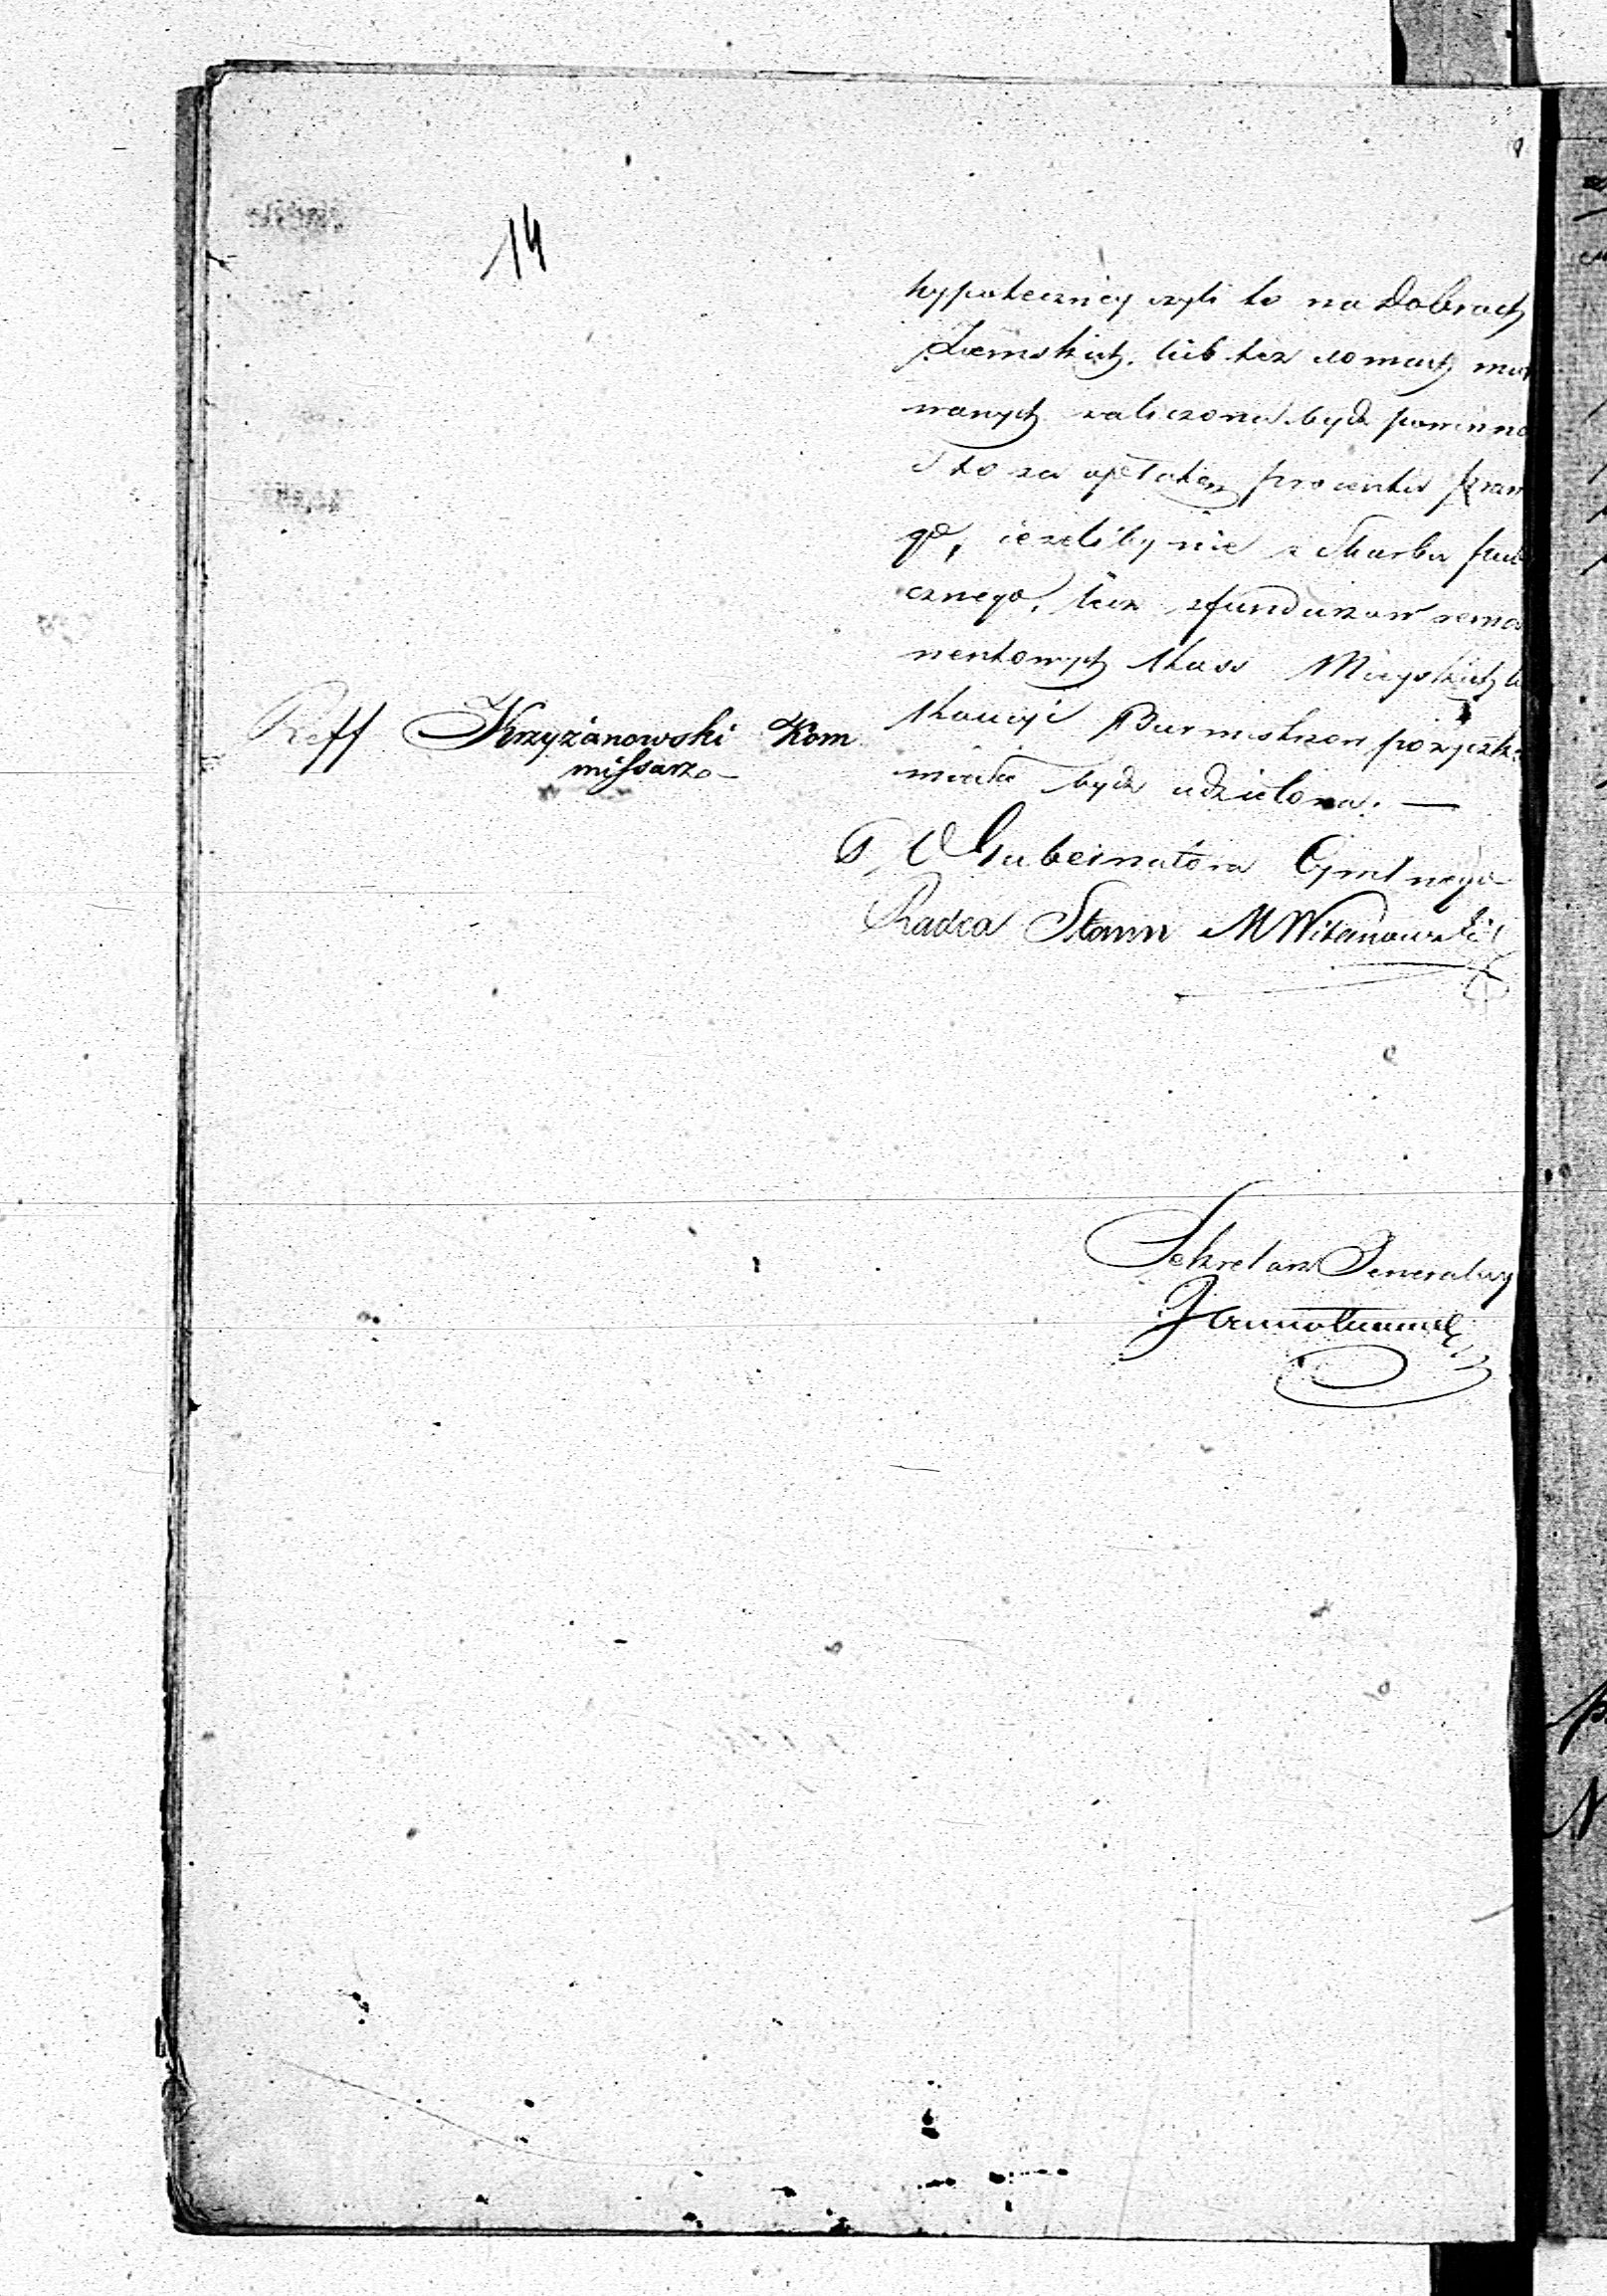 14
hypoteczney czyli to na Dobrach
Ziemskich, lub też domach mur
wanych zaliczona bydź powinna
I to za opłatą procentu praw
go, ieżeliby nie z Skarbu Publi
cznego, lecz z funduszow rema
nentowych Kass Mieyskich
Kaucyi Burmistrzow pożyczka
miała bydź udzielona. —
Reff Krzyżanowski Kom
missarz
P, O Gubernatora Cywilnego
Radca Stanu M Witanowski
Sekretarz Generalny